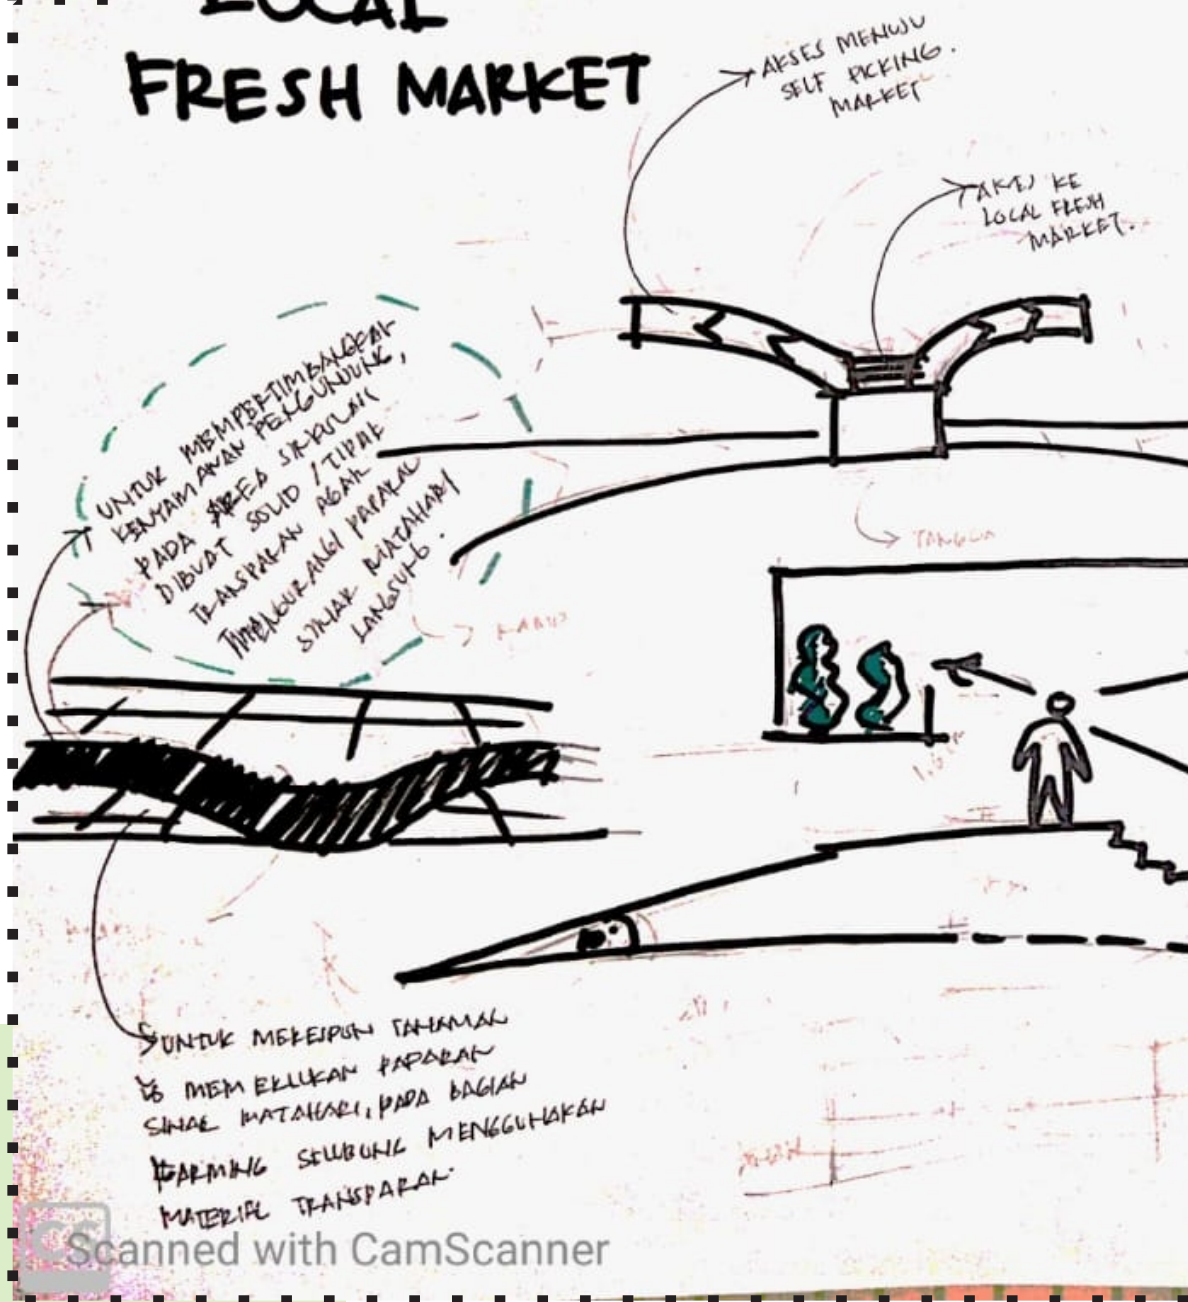 LOCAL
FRESH MARKET
AKSES MENUJU
SELF PICKING
MARKET
AKSES KE
LOCAL FRESH
MARKET.
UNTUK MEMPERTIMBANGKAN
KENYAMANAN PENGUNJUNG,
PADA AREA SIRKULASI
DIBUAT SOLID / TIDAK
TRANSPARAN AGAR
MENGURANGI PAPARAN
SINAR MATAHARI
LANGSUNG.
TANGGA
UNTUK MERESPON TANAMAN
YG MEMERLUKAN PAPARAN
SINAR MATAHARI, PADA BAGIAN
FARMING SELUBUNG MENGGUNAKAN
MATERIAL TRANSPARAN.
CS
Scanned with CamScanner